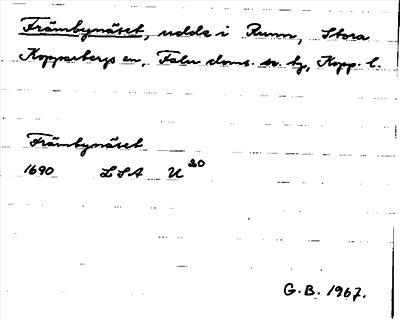 Främbynäset, udde i Runn, Stora
Kopparbergs sn, Falu doms. so. tg, Kopp. l.
Främbynäset
1690 LSA U 20
G.B. 1967.